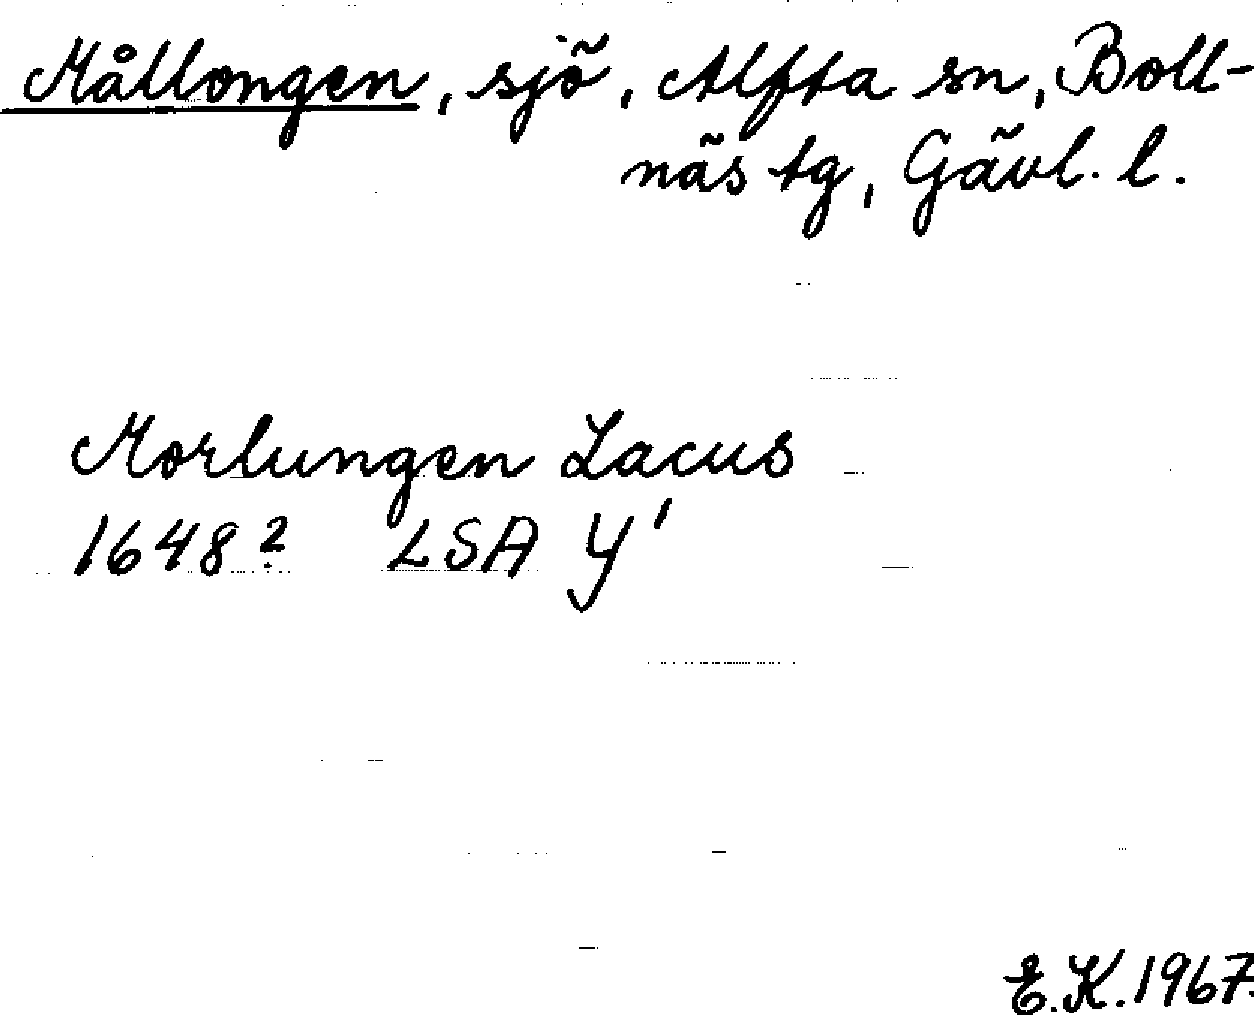 Mållongen, sjö, Alfta sn, Boll-
näs tg, Gävl. l.
Morlungen Lacus
1648? LSA Y'
E.K. 1967.